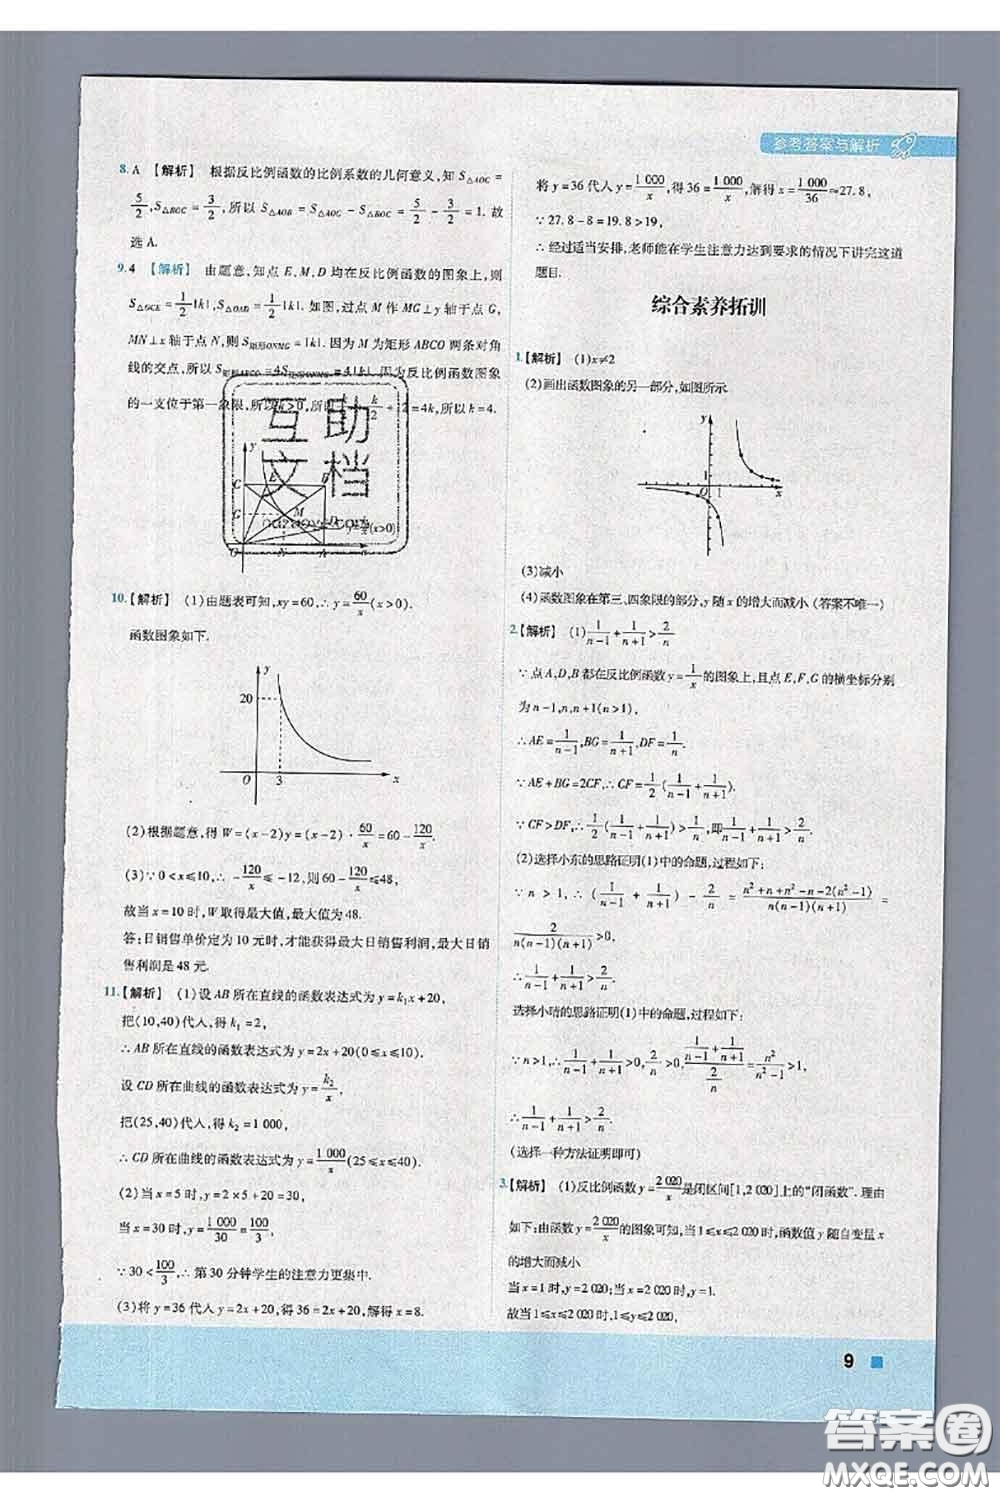 参考答案与解析
8. A 【解析】 根据反比例函数的比例系数的几何意义,知 S△AOC =
5/2, S△BOC = 3/2, 所以 S△AOB = S△AOC − S△BOC = 5/2 − 3/2 = 1. 故
选 A.
9. 4 【解析】 由题意,知点 E,M,D 均在反比例函数的图象上,则
S△OCE = 1/2|k|, S△OAD = 1/2|k|. 如图,过点 M 作 MG⊥y 轴于点 G,
MN⊥x 轴于点 N,则 S矩形ONMG = |k|. 因为 M 为矩形 ABCO 两条对角
线的交点,所以 S矩形ABCO = 4S矩形ONMG = 4|k|. 因为反比例函数图象
的一支位于第一象限,所以 k>0,所以 k/2 + k/2 + 12 = 4k,所以 k = 4.
互助
文档
y
C E B
G M
D y=k/x(x>0)
O N A x
10. 【解析】 (1)由题表可知, xy=60, ∴ y=60/x(x>0).
函数图象如下.
y
20
O 3 x
(2)根据题意,得 W=(x−2)y=(x−2)·60/x=60−120/x.
(3)∵ 0<x≤10, ∴ −120/x≤−12, 则 60−120/x≤48,
故当 x=10 时, W 取得最大值,最大值为 48.
答:日销售单价定为 10 元时,才能获得最大日销售利润,最大日销
售利润是 48 元.
11. 【解析】 (1)设 AB 所在直线的函数表达式为 y=k₁x+20,
把(10,40)代入,得 k₁=2,
∴ AB 所在直线的函数表达式为 y=2x+20(0≤x≤10).
设 CD 所在曲线的函数表达式为 y=k₂/x,
把(25,40)代入,得 k₂=1 000,
∴ CD 所在曲线的函数表达式为 y=1 000/x(25≤x≤40).
(2)当 x=5 时, y=2×5+20=30,
当 x=30 时, y=1 000/30=100/3,
∵ 30<100/3, ∴ 第 30 分钟学生的注意力更集中.
(3)将 y=36 代入 y=2x+20, 得 36=2x+20, 解得 x=8.
将 y=36 代入 y=1 000/x, 得 36=1 000/x, 解得 x=1 000/36≈27.8,
∵ 27.8−8=19.8>19,
∴ 经过适当安排,老师能在学生注意力达到要求的情况下讲完这道
题目.
综合素养拓训
1. 【解析】 (1)x≠2
(2)画出函数图象的另一部分,如图所示.
y
1
O 1 x
(3)减小
(4)函数图象在第三、四象限的部分, y 随 x 的增大而减小 (答案不唯一)
2. 【解析】 (1)1/(n−1)+1/(n+1)>2/n
∵ 点 A,D,B 都在反比例函数 y=1/x 的图象上,且点 E,F,G 的横坐标分别
为 n−1,n,n+1(n>1),
∴ AE=1/(n−1), BG=1/(n+1), DF=1/n.
∵ AE+BG=2CF, ∴ CF=1/2(1/(n−1)+1/(n+1)).
∵ CF>DF, ∴ 1/2(1/(n−1)+1/(n+1))>1/n, 即1/(n−1)+1/(n+1)>2/n.
(2)选择小东的思路证明(1)中的命题,过程如下:
∵ n>1, ∴ (1/(n−1)+1/(n+1))−2/n=(n²+n+n²−n−2(n²−1))/(n(n−1)(n+1))=
2/(n(n−1)(n+1))>0,
∴ 1/(n−1)+1/(n+1)>2/n.
选择小晴的思路证明(1)中的命题,过程如下:
∵ n>1, ∴ 1/(n−1)+1/(n+1)>0, 2/n>0, (1/(n−1)+1/(n+1))/(2/n)=n²/(n²−1)>1,
∴ 1/(n−1)+1/(n+1)>2/n.
(选择一种方法证明即可)
3. 【解析】 (1)反比例函数 y=2 020/x是闭区间[1,2 020]上的“闭函数”. 理由
如下:由函数 y=2 020/x的图象可知,当 1≤x≤2 020 时,函数值 y 随自变量 x
的增大而减小.
当 x=1 时, y=2 020;当 x=2 020 时, y=1.
故当 1≤x≤2 020 时, 1≤y≤2 020,
9
答案圈
MXQE.COM